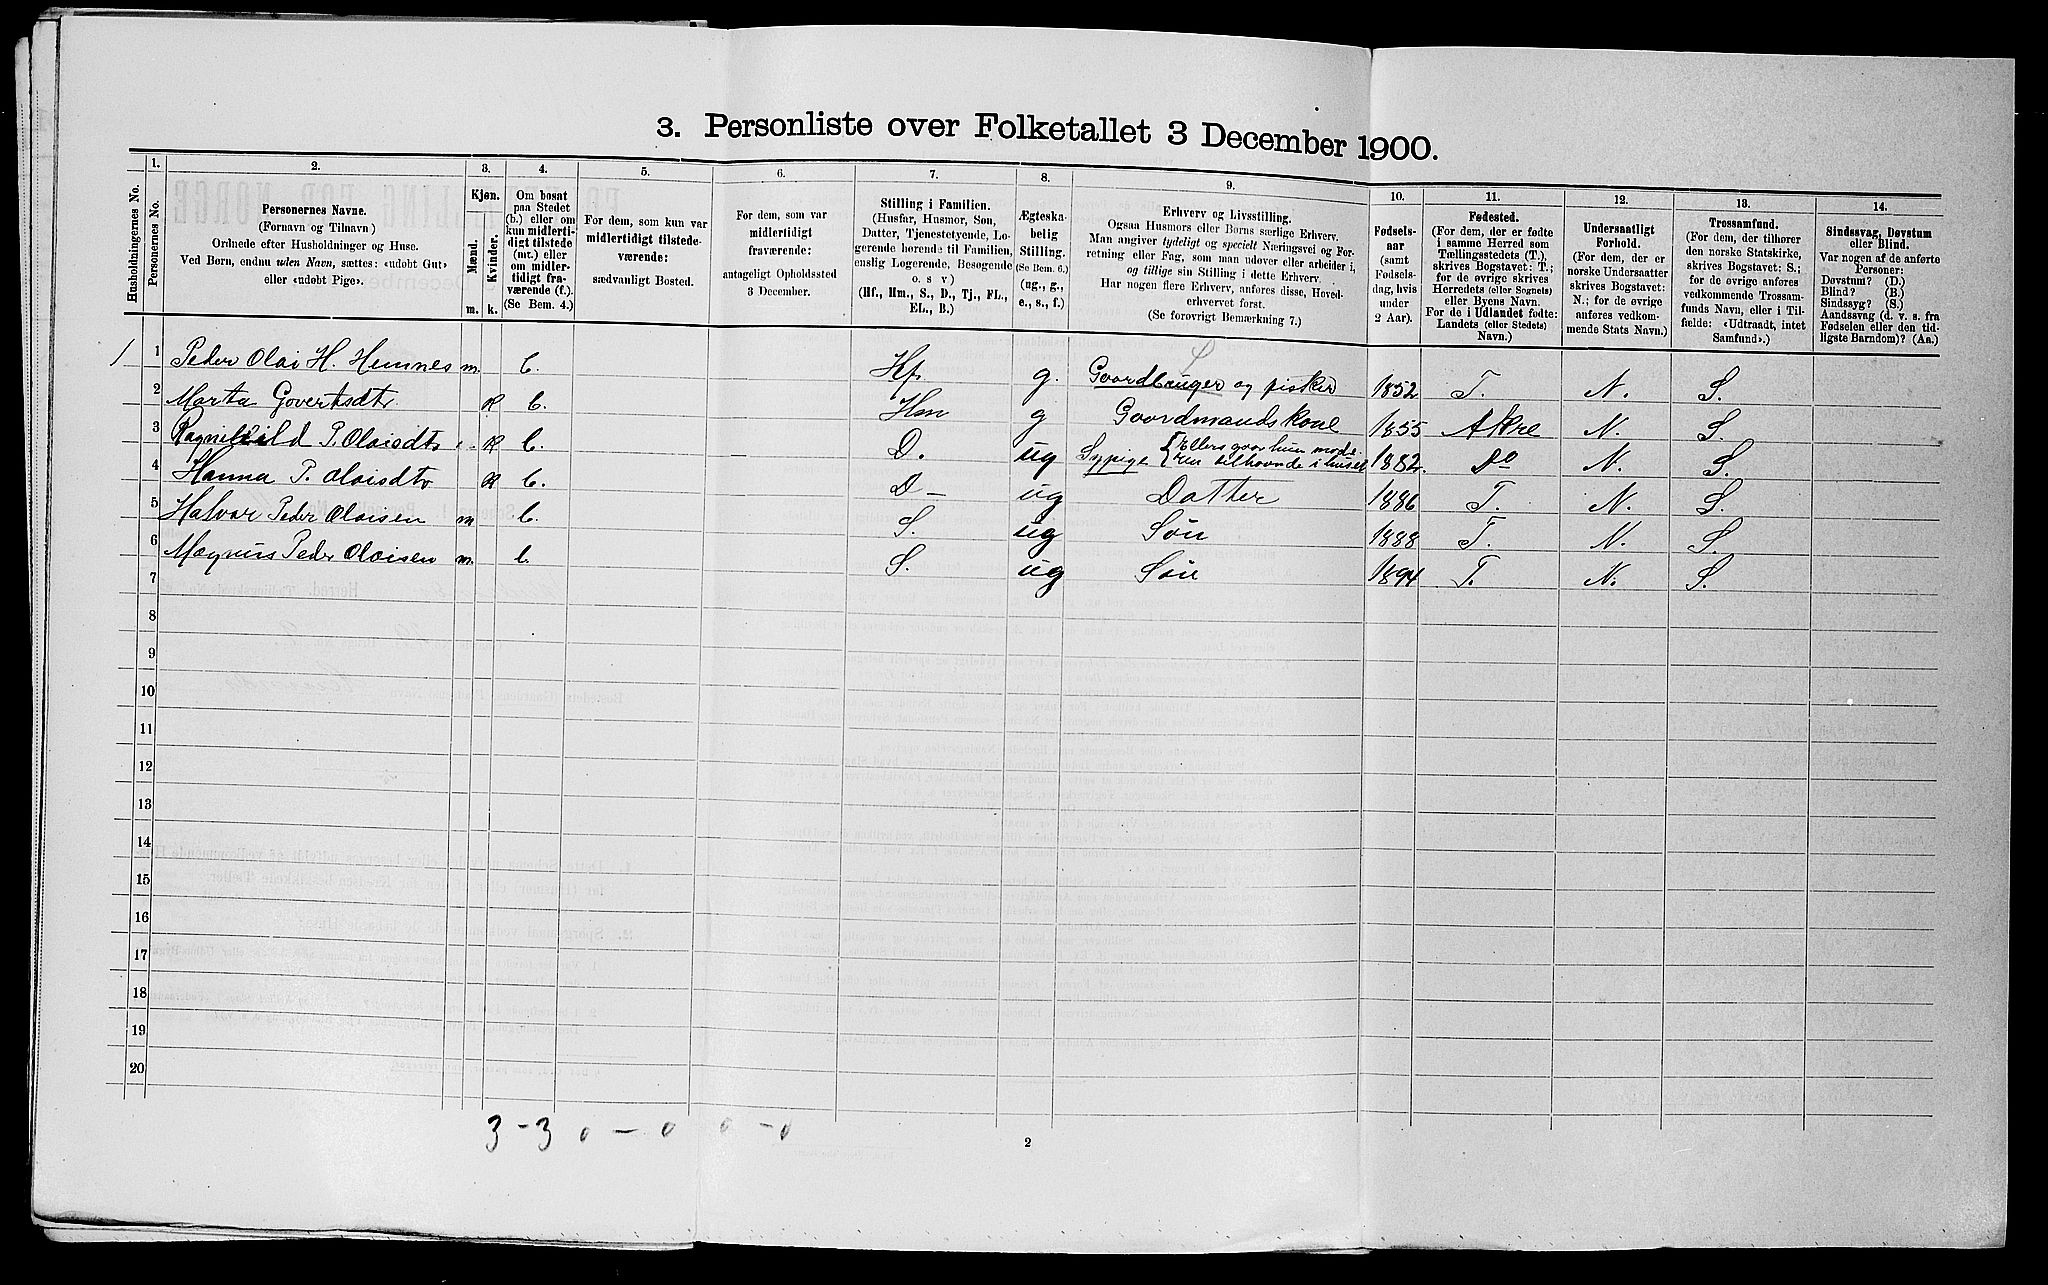 3. Personliste over Folketallet 3 December 1900.
1. 2. 3. 4. 5. 6. 7. 8. 9. 10. 11. 12. 13. 14.
Husholdningernes No.
Personernes No.
Personernes Navne.
(Fornavn og Tilnavn)
Ordnede efter Husholdninger og Huse.
Ved Børn, endnu uden Navn, sættes: «udøbt Gut»
eller «udøbt Pige».
Kjøn.
Mænd. Kvinder.
m. k.
Om bosat
paa Stedet
(b.) eller om
kun midlerti-
digt tilstede
(mt.) eller
om midler-
tidigt fra-
værende (f.).
(Se Bem. 4.)
For dem, som kun var
midlertidigt tilstede-
værende:
sædvanligt Bosted.
For dem, som var
midlertidigt
fraværende:
antageligt Opholdssted
3 December.
Stilling i Familien.
(Husfar, Husmor, Søn,
Datter, Tjenestetyende, Lo-
gerende hørende til Familien,
enslig Logerende, Besøgende
o. s v)
(Hf., Hm., S., D., Tj., FL.,
EL., B.)
Ægteska-
belig
Stilling.
(Se Bem. 6.)
(ug., g.,
e., s., f.)
Erhverv og Livsstilling.
Ogsaa Husmors eller Børns særlige Erhverv.
Man angiver tydeligt og specielt Næringsvei og For-
retning eller Fag, som man udøver eller arbeider i,
og tillige sin Stilling i dette Erhverv.
Har nogen flere Erhverv, anføres disse, Hoved-
erhvervet først.
(Se forøvrigt Bemærkning 7.)
Fødsels-
aar
(samt
Fødsels-
dag, hvis
under
2 Aar).
Fødested.
(For dem, der er fødte
i samme Herred som
Tællingsstedets (T.),
skrives Bogstavet: T.;
for de øvrige skrives
Herredets (eller Sognets)
eller Byens Navn.
For de i Udlandet fødte:
Landets (eller Stedets)
Navn.)
Undersaatligt
Forhold.
(For dem, der er
norske Undersaatter
skrives Bogstavet:
N.; for de øvrige
anføres vedkom-
mende Stats Navn.)
Trossamfund.
(For dem, der tilhører
den norske Statskirke,
skrives Bogstavet: S.;
for de øvrige anføres
vedkommende Trossam-
funds Navn, eller i Til-
fælde: «Udtraadt, intet
Samfund».)
Sindssvag, Døvstum
eller Blind.
Var nogen af de anførte
Personer:
Døvstum? (D.)
Blind? (B.)
Sindssyg? (S.)
Aandssvag (d. v. s. fra
Fødselen eller den tid-
ligste Barndom)? (Aa.)
1 1 Peder Olai H. Hemnes m. b. Hf. g. Gaardbruger og fisker 1852 T. N. S.
2 Marta Govertsdtr. k b. Hm g Gaardmandskone 1855 Akre N. S.
3 Ragnehild P. Olaisdtr k b. D. ug Sypige { Ellers gaar hun mode-
ren tilhaande i huset 1882 Do N. S.
4 Hanna P. Olaisdtr k b. D - ug Datter 1886 T. N. S.
5 Halvar Peder Olaisen m b. S. ug Søn 1888 T. N. S.
6 Magnus Peder Olaisen m. b. S. ug Søn 1894 T. N. S.
7
8
9
10
11
12
13
14
15
16
17
18
19
20
3 - 3 0 - 0 0 - 0
2